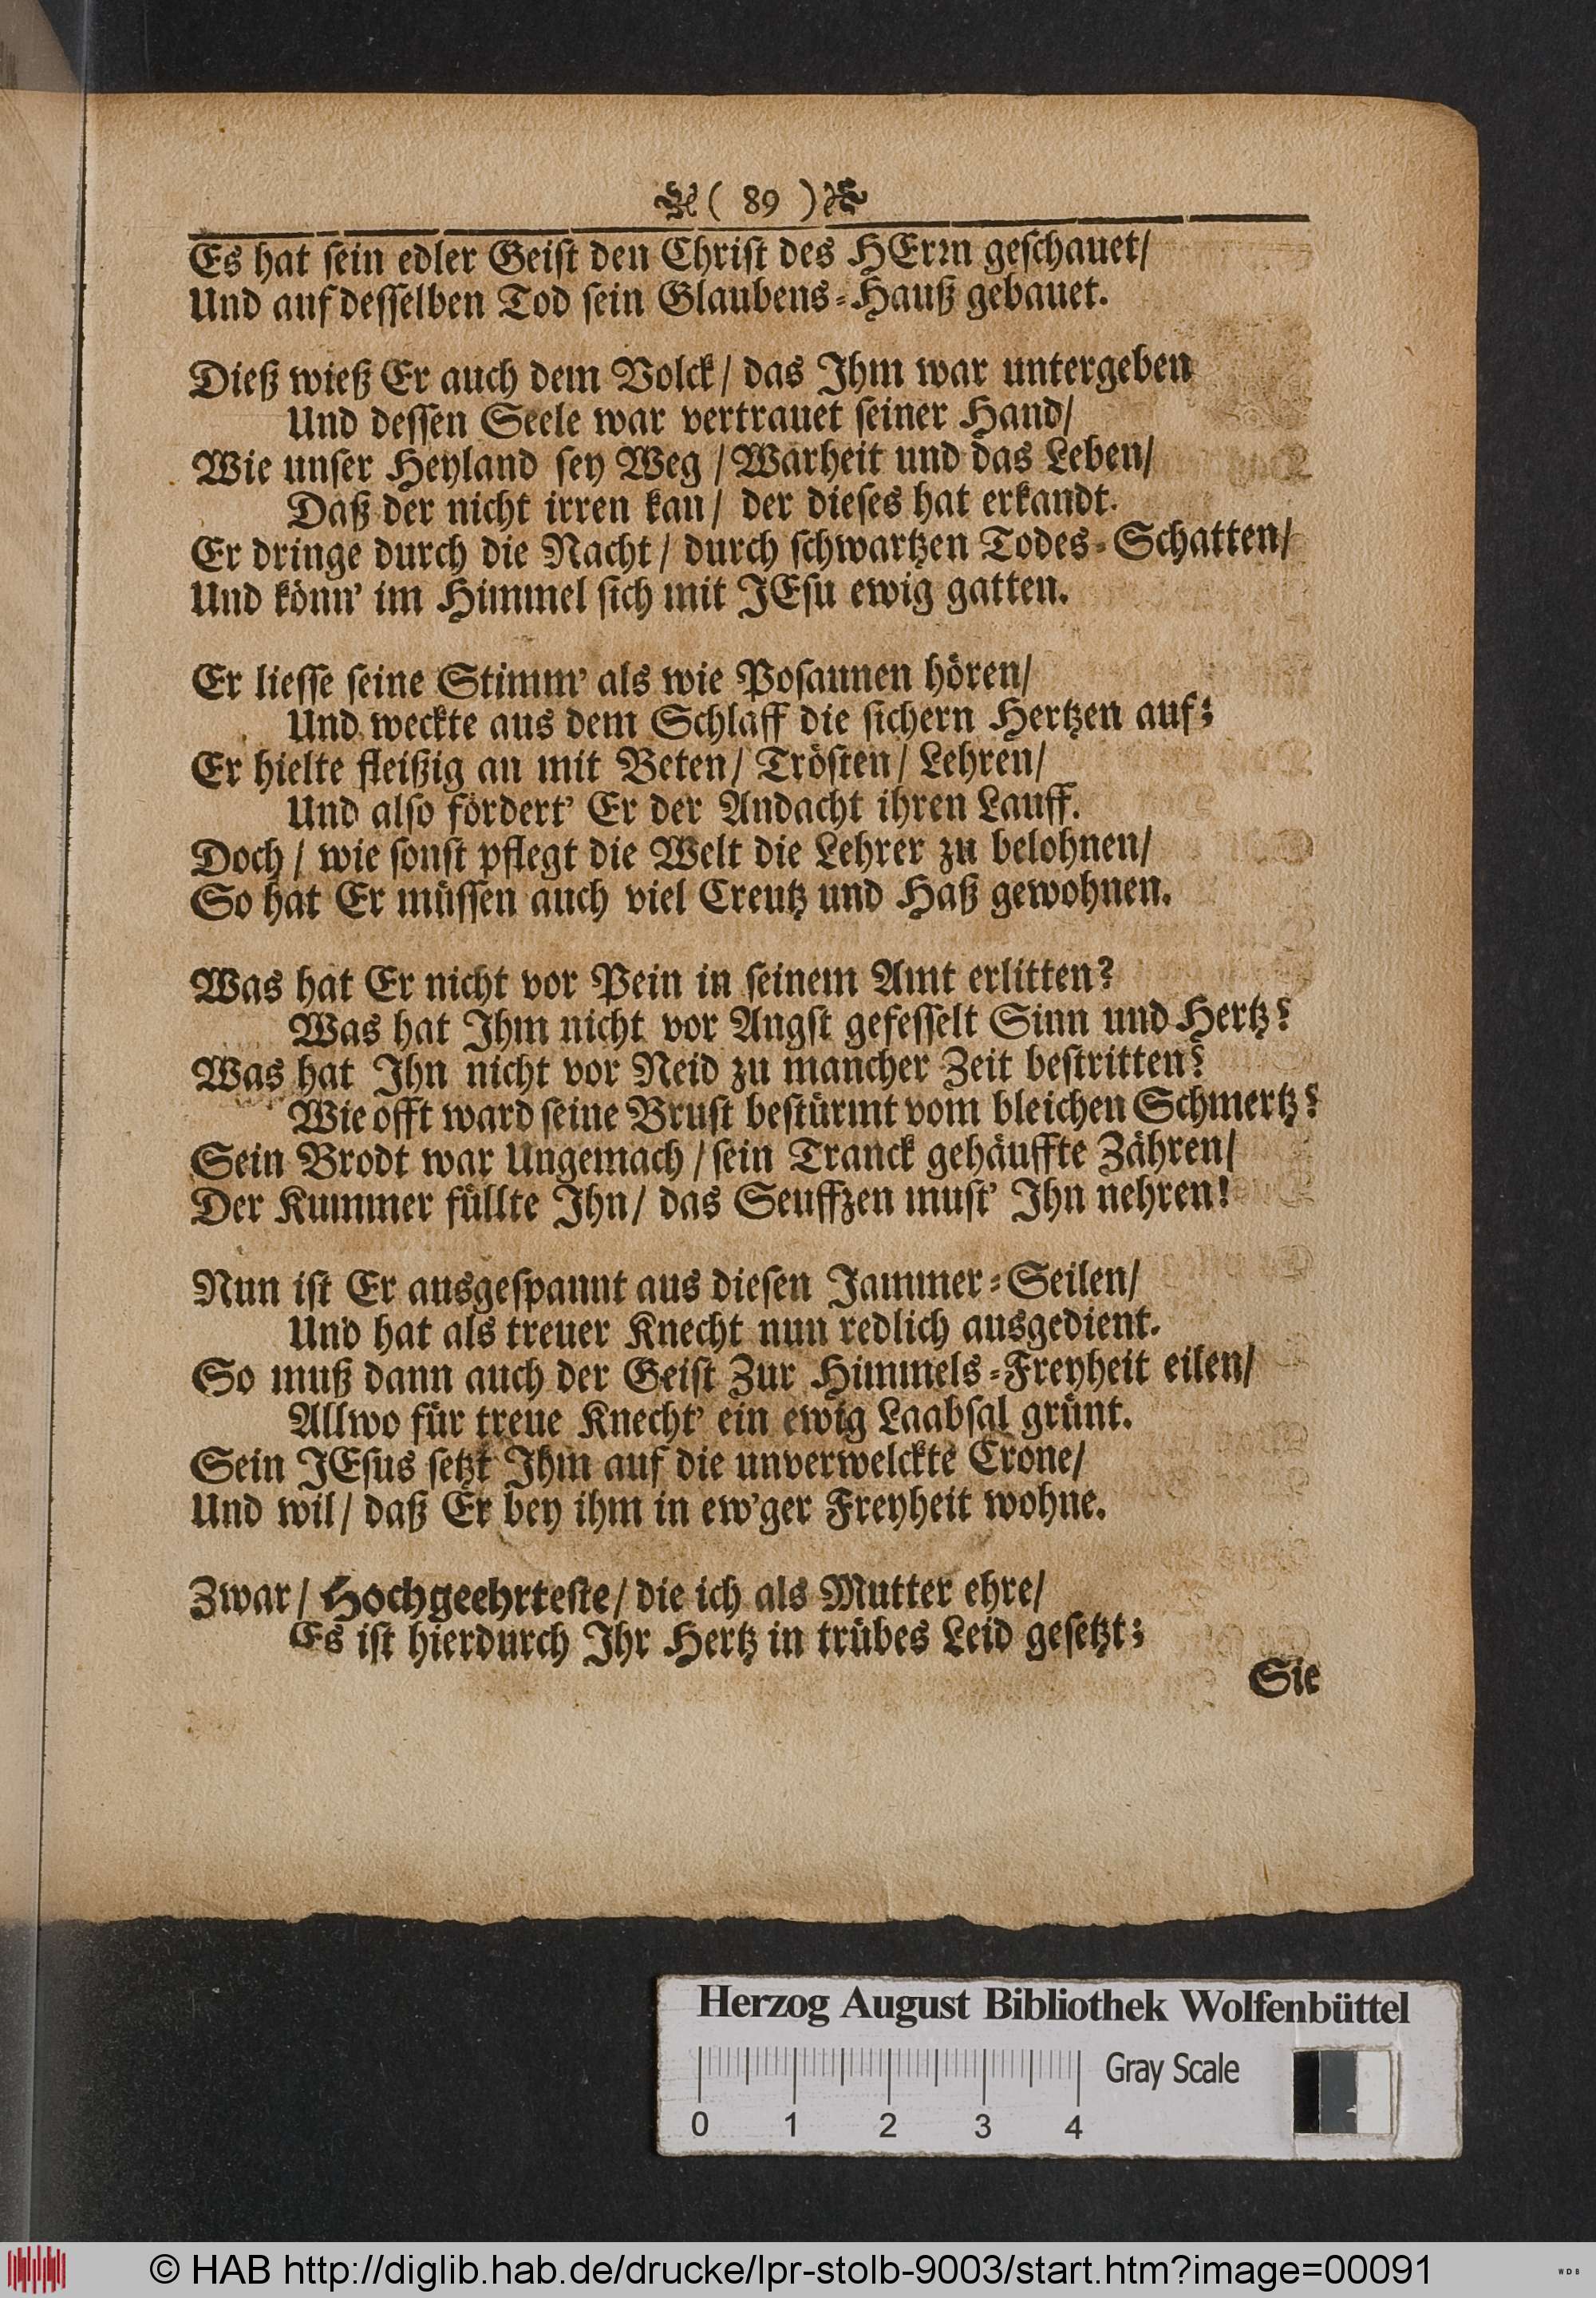 ( 89 )
Es hat ſein edler Geiſt den Chriſt des HErꝛn geſchauet/
Und auf deſſelben Tod ſein Glaubens-Hauß gebauet.
Dieß wieß Er auch dem Volck/ das Ihm war untergeben
Und deſſen Seele war vertrauet ſeiner Hand/
Wie unſer Heyland ſey Weg / Warheit und das Leben/
Daß der nicht irren kan/ der dieſes hat erkandt.
Er dringe durch die Nacht/ durch ſchwartzen Todes-Schatten/
Und könn' im Himmel ſich mit JEſu ewig gatten.
Er lieſſe ſeine Stimm' als wie Poſaunen hören/
Und weckte aus dem Schlaff die ſichern Hertzen auf;
Er hielte fleißig an mit Beten/ Tröſten/ Lehren/
Und alſo fördert' Er der Andacht ihren Lauff.
Doch/ wie ſonſt pflegt die Welt die Lehrer zu belohnen/
So hat Er müſſen auch viel Creutz und Haß gewohnen.
Was hat Er nicht vor Pein in ſeinem Amt erlitten?
Was hat Ihm nicht vor Angſt gefeſſelt Sinn und Hertz?
Was hat Ihn nicht vor Neid zu mancher Zeit beſtritten?
Wie offt ward ſeine Bruſt beſtürmt vom bleichen Schmertz?
Sein Brodt war Ungemach / ſein Tranck gehäuffte Zähren/
Der Kummer füllte Ihn/ das Seuffzen muſt' Ihn nehren!
Nun iſt Er ausgeſpannt aus dieſen Jammer-Seilen/
Und hat als treuer Knecht nun redlich ausgedient.
So muß dann auch der Geiſt Zur Himmels-Freyheit eilen/
Allwo für treue Knecht' ein ewig Laabſal grünt.
Sein JEſus ſetzt Ihm auf die unverwelckte Crone/
Und wil/ daß Er bey ihm in ew'ger Freyheit wohne.
Zwar/ Hochgeehrteſte/ die ich als Mutter ehre/
Es iſt hierdurch Ihr Hertz in trübes Leid geſetzt;
Sie
Herzog August Bibliothek Wolfenbüttel
Gray Scale
0 1 2 3 4
© HAB http://diglib.hab.de/drucke/lpr-stolb-9003/start.htm?image=00091
WDB